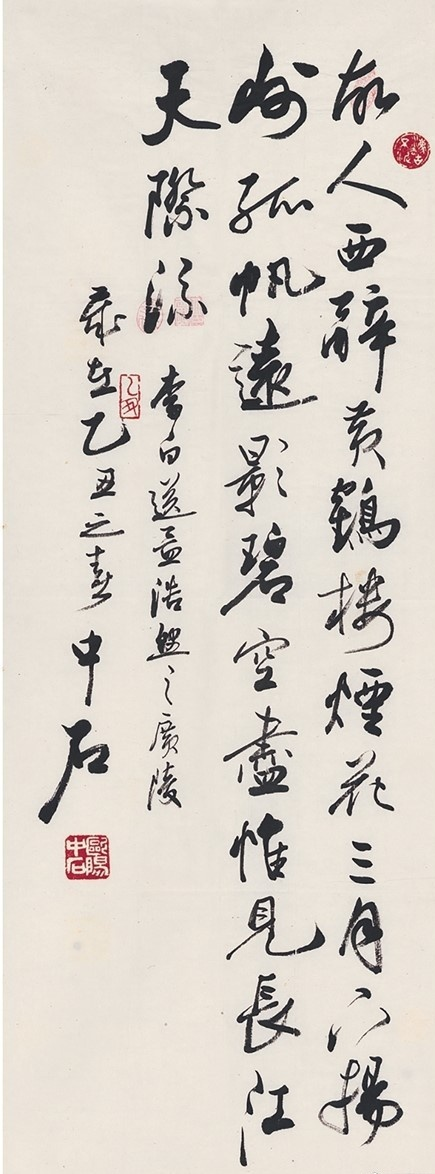 故人西辭黄鶴樓煙花三月下揚
州孤帆遠影碧空盡惟見長江
天際流
李白送孟浩然之廣陵
歲在乙丑之春 中石
乙丑
歐陽中石